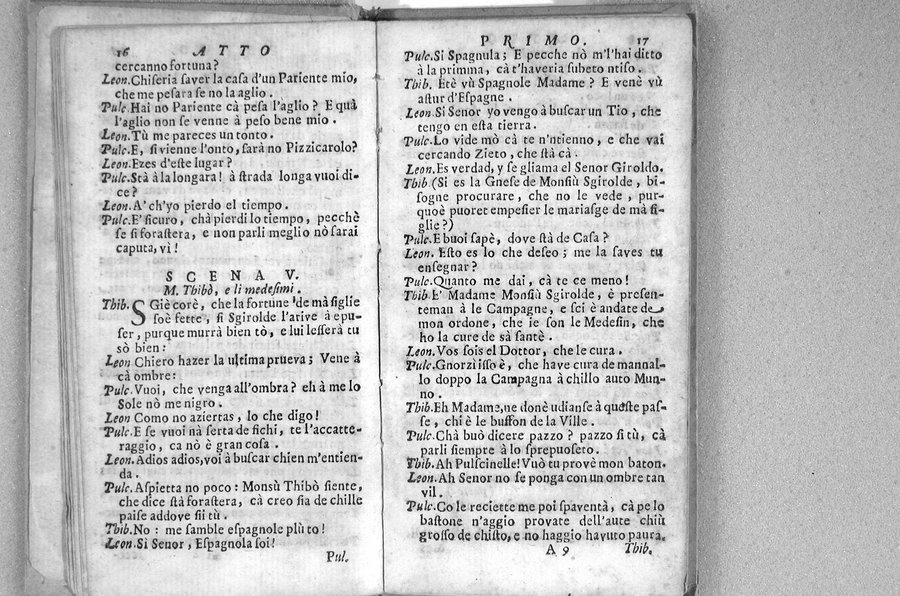 16 ATTO
cercanno fortuna?
Leon. Chiſeria ſaver la caſa d'un Pariente mio,
che me peſara ſe no la aglio.
Pulc. Hai no Pariente cà peſa l'aglio? E quà
l'aglio non ſe venne à peſo bene mio.
Leon. Tù me pareces un tonto.
Pulc. E, ſi vienne l'onto, ſarà no Pizzicarolo?
Leon. Ezes d'eſte lugar?
Pulc. Stà à la longara! à ſtrada longa vuoi di-
ce?
Leon. A' ch'yo pierdo el tiempo.
Pulc. E' ſicuro, chà pierdi lo tiempo, pecchè
ſe ſi foraſtera, e non parli meglio nò ſarai
caputa, vì!
SCENA V.
M. Thibò, e li medeſimi.
Thib. SGiè corè, che la fortune 'de mà figlie
ſoè fette, ſi Sgirolde l'arive à epu-
ſer, purque murrà bien tò, e lui leſſerà tu
sò bien:
Leon Chiero hazer la ultima prueva; Vene à
cà ombre:
Pulc. Vuoi, che venga all'ombra? eh à me lo
Sole nò me nigro.
Leon Como no aziertas, lo che digo!
Pulc. E ſe vuoi nà ſerta de fichi, te l'accatte-
raggio, ca nò è gran coſa.
Leon. Adios adios, voi à buſcar chien m'entien-
da.
Pulc. Aſpietta no poco: Monsù Thibò ſiente,
che dice ſtà foraſtera, cà creo ſia de chille
paiſe addove ſii tù.
Thib. No: me ſamble eſpagnole plù to!
Leon. Si Senor, Eſpagnola ſoi!
Pul.
PRIMO. 17
Pulc. Si Spagnula; E pecche nò m'l'hai ditto
à la primma, cà t'haveria ſubeto ntiſo.
Thib. Etè vù Spagnole Madame? E venè vù
aſtur d'Eſpagne.
Leon Si Senor yo vengo à buſcar un Tio, che
tengo en eſta tierra.
Pulc. Lo vide mò cà te n'ntienno, e che vai
cercando Zieto, che ſtà cà.
Leon. Es verdad, y ſe gliama el Senor Giroldo.
Thib (Si es la Gneſe de Monſiù Sgirolde, bi-
ſogne procurare, che no le vede, pur-
quoè puoret empeſier le mariaſge de mà fi-
glie?)
Pulc. E buoi ſapè, dove ſtà de Caſa?
Leon. Eſto es lo che deſeo; me la ſaves tu
enſegnar?
Pulc. Quanto me dai, cà te ce meno!
Thib E' Madame Monſiù Sgirolde, è preſen-
teman à le Campagne, e ſci è andate de
mon ordone, che ie ſon le Medeſin, che
ho la cure de sà ſantè.
Leon. Vos ſois el Dottor, che le cura.
Pulc. Gnorzì iſſo è, che have cura de mannal-
lo doppo la Campagna à chillo auto Mun-
no.
Thib. Eh Madame, ne donè udianſe à queſte paſ-
ſe, chi è le buffon de la Ville.
Pulc. Chà buò dicere pazzo? pazzo ſi tù, cà
parli ſiempre à lo ſprepuoſeto.
Thib. Ah Pulſcinelle! Vuò tu provè mon baton.
Leon. Ah Senor no ſe ponga con un ombre tan
vil.
Pulc. Co le reciette me poi ſpaventà, cà pe lo
baſtone n'aggio provate dell'aute chiù
groſſo de chiſto, e no haggio havuto paura.
A 9 Thib.